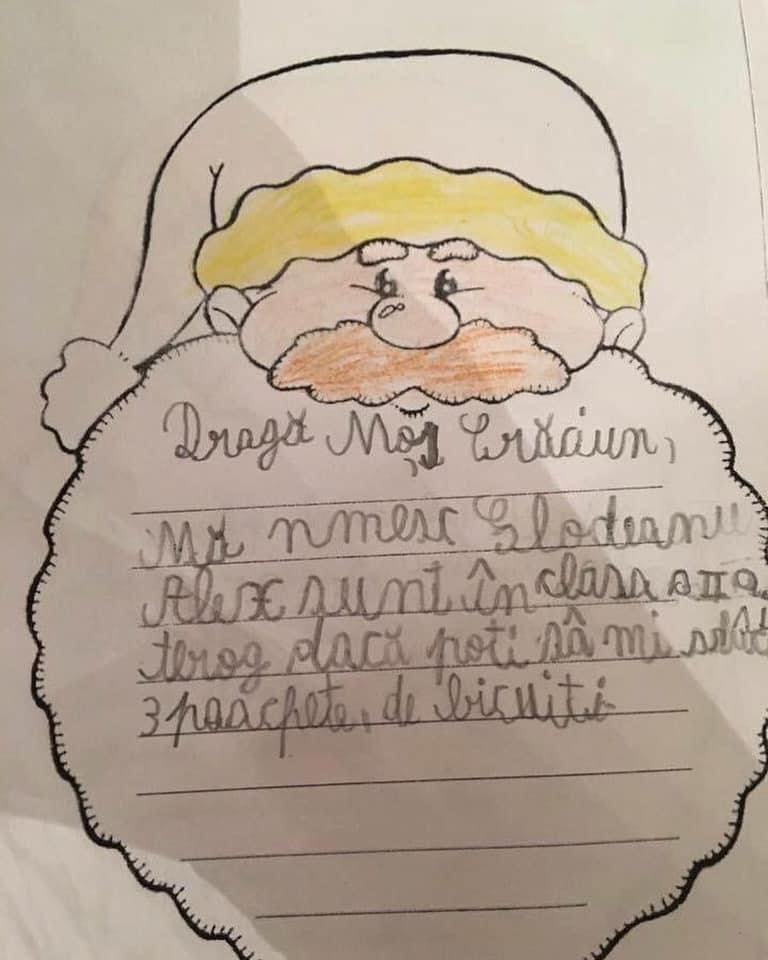 Dragă Moș Crăciun,
Mă nmesc Glodeanu
Alex sunt în clasa a II a
terog dacă poti să mi
3 paachete, de bicuiti